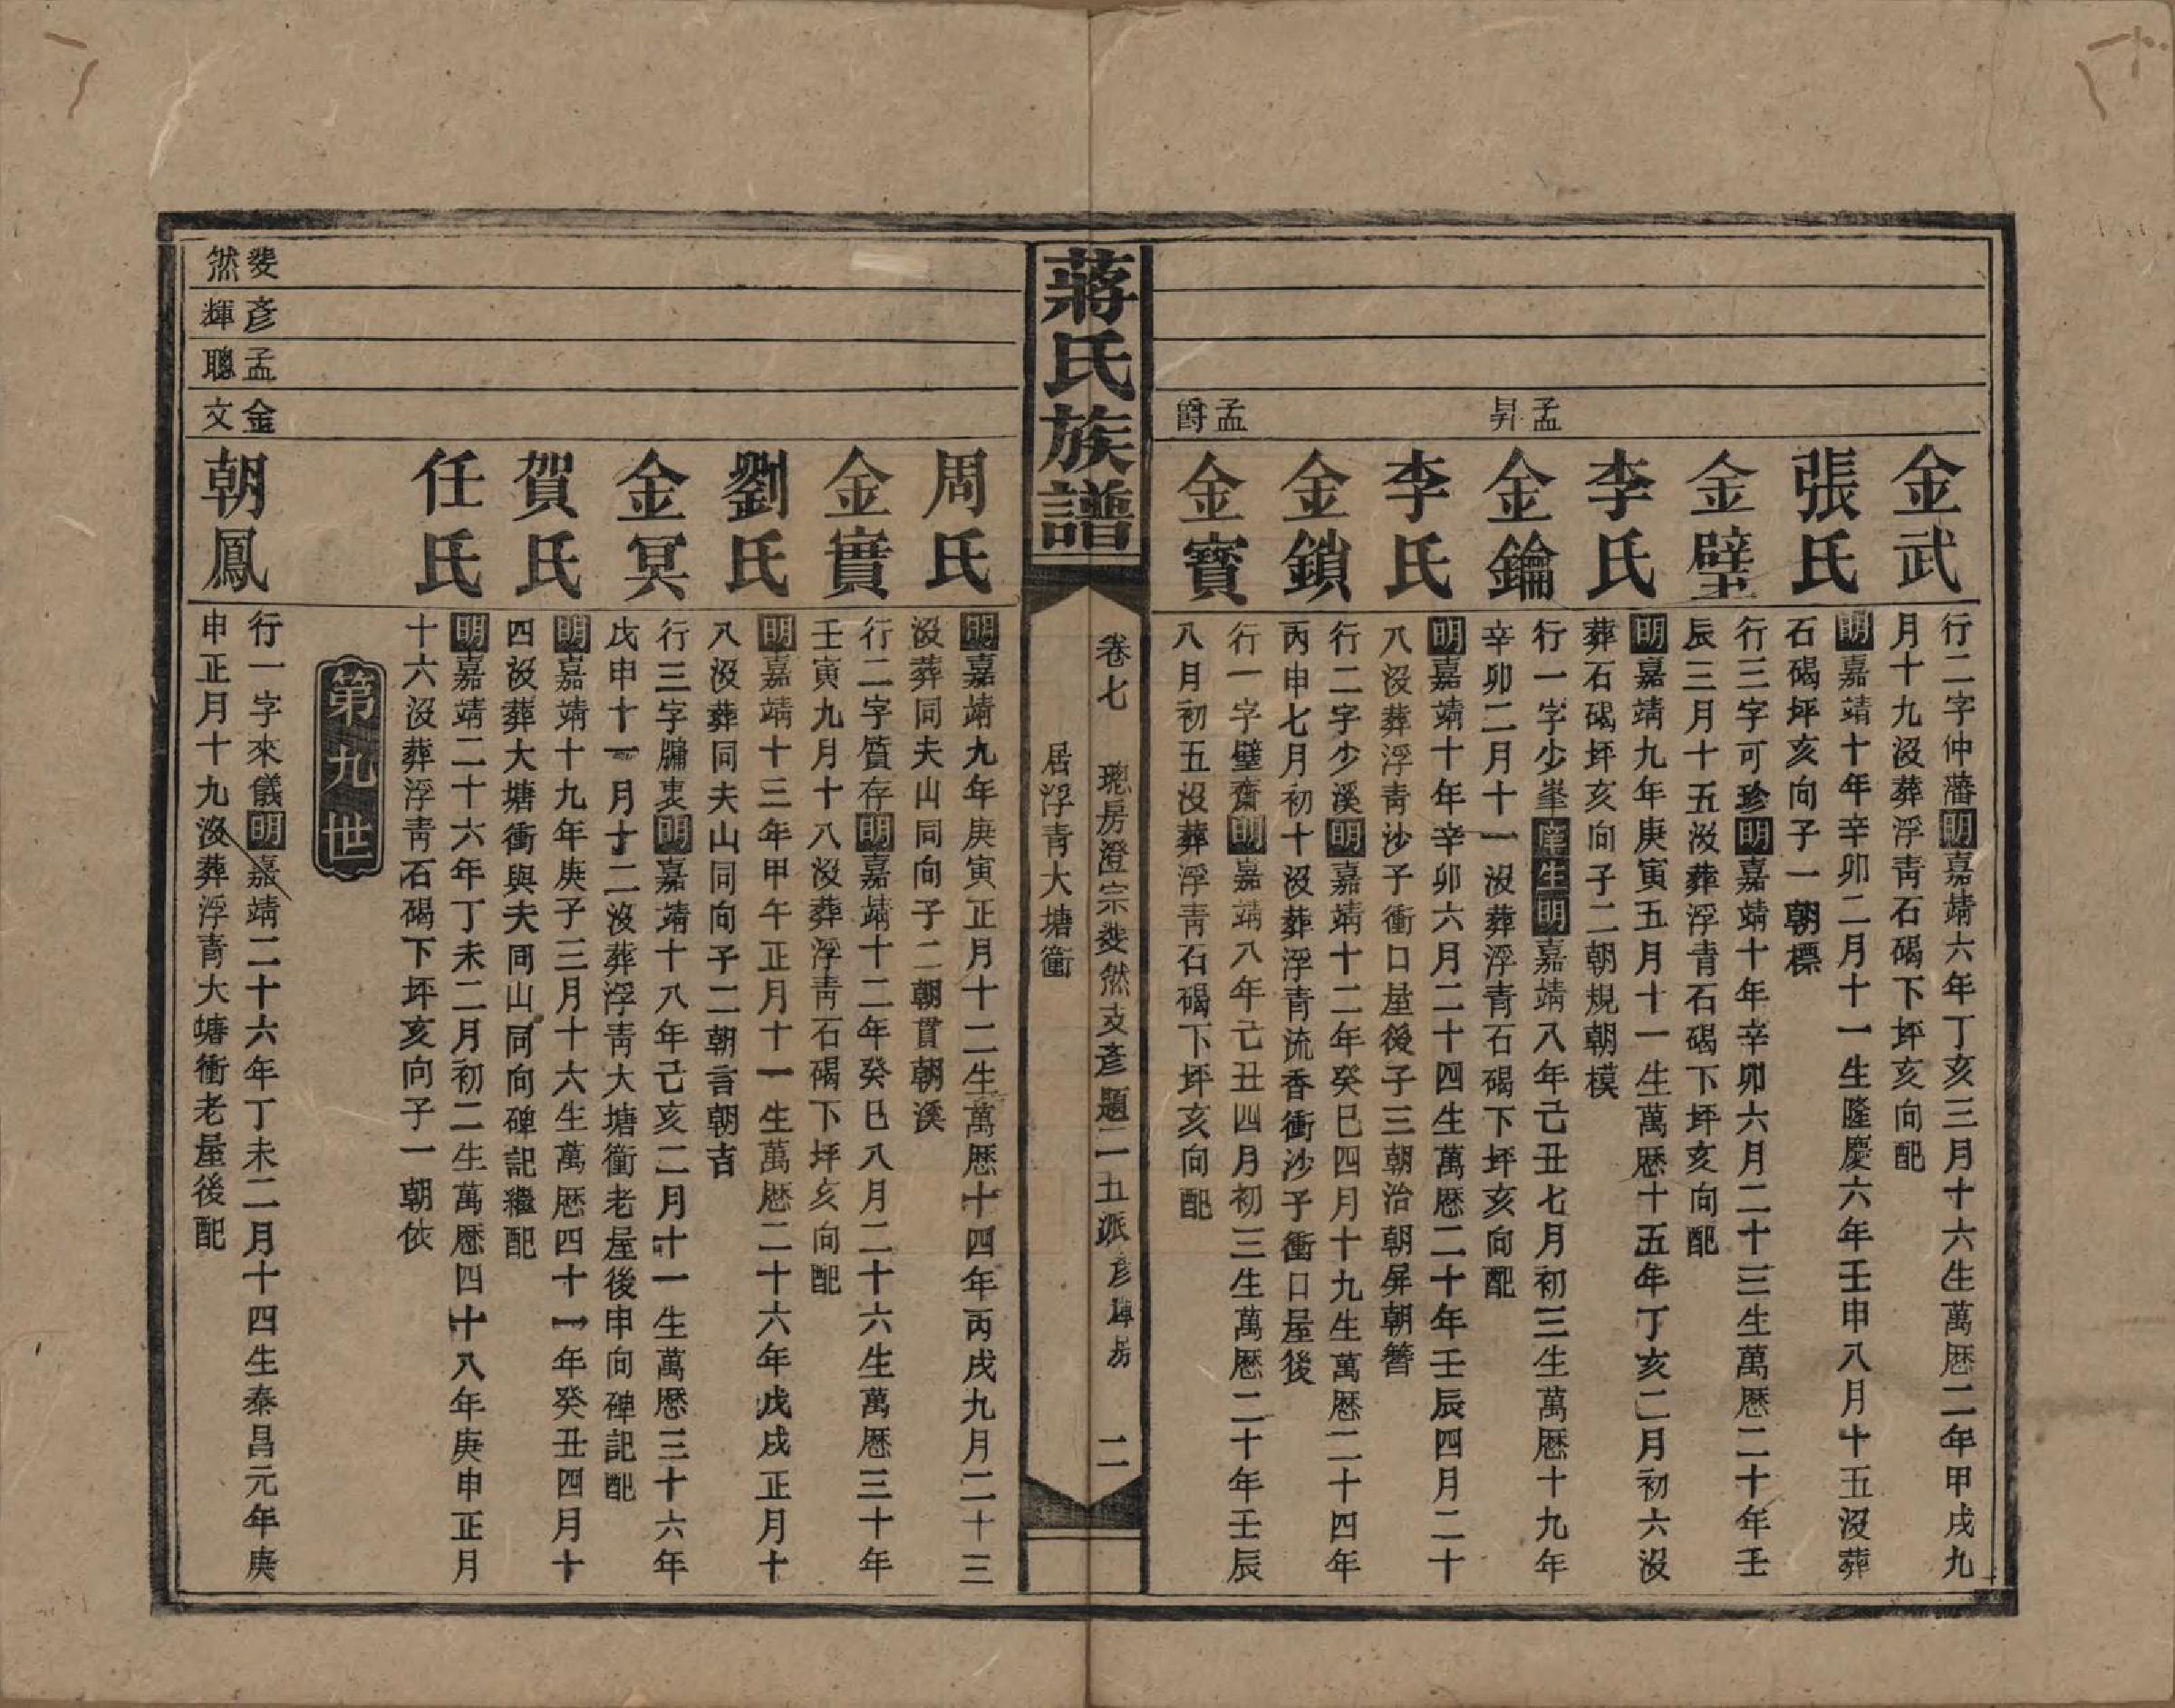 金武
行二字仲藩明嘉靖六年丁亥三月十六生萬厯二年甲戌九
月十九沒葬浮青石碣下坪亥向配
張氏
明嘉靖十年辛卯二月十一生隆慶六年壬申八月十五沒葬
石碣坪亥向子一朝標
金璧
行三字可珍明嘉靖十年辛卯六月二十三生萬厯二十年壬
辰三月十五沒葬浮青石碣下坪亥向配
李氏
明嘉靖九年庚寅五月十一生萬厯十五年丁亥二月初六沒
葬石碣坪亥向子二朝規朝模
孟
昇
金鑰
行一字少峯庠生明嘉靖八年己丑七月初三生萬厯十九年
辛卯二月十一沒葬浮青石碣下坪亥向配
李氏
明嘉靖十年辛卯六月二十四生萬厯二十年壬辰四月二十
八沒葬浮青沙子衝口屋後子三朝治朝屏朝簪
金鎖
行二字少溪明嘉靖十二年癸巳四月十九生萬厯二十四年
丙申七月初十沒葬浮青流香衝沙子衝口屋後
孟
爵
金寶
行一字璧齋明嘉靖八年己丑四月初三生萬厯二十年壬辰
八月初五沒葬浮青石碣下坪亥向配
蔣氏族譜
卷七 璁房澄宗斐然支彥題二一五派彥輝房 二
居浮青大塘衝
周氏
明嘉靖九年庚寅正月十二生萬厯十四年丙戌九月二十三
沒葬同夫山同向子二朝貫朝溪
金實
行二字質存明嘉靖十二年癸巳八月二十六生萬厯三十年
壬寅九月十八沒葬浮青石碣下坪亥向配
劉氏
明嘉靖十三年甲午正月十一生萬厯二十六年戊戌正月十
八沒葬同夫山同向子二朝言朝吉
金冥
行三字牖衷明嘉靖十八年己亥二月十一生萬厯三十六年
戊申十一月十二沒葬浮青大塘衝老屋後申向碑記配
賀氏
明嘉靖十九年庚子三月十六生萬厯四十一年癸丑四月十
四沒葬大塘衝與夫同山同向碑記繼配
任氏
明嘉靖二十六年丁未二月初二生萬厯四十八年庚申正月
十六沒葬浮青石碣下坪亥向子一朝依
第九世
斐彥孟金
然輝聰文
朝鳳
行一字來儀明嘉靖二十六年丁未二月十四生泰昌元年庚
申正月十九沒葬浮青大塘衝老屋後配